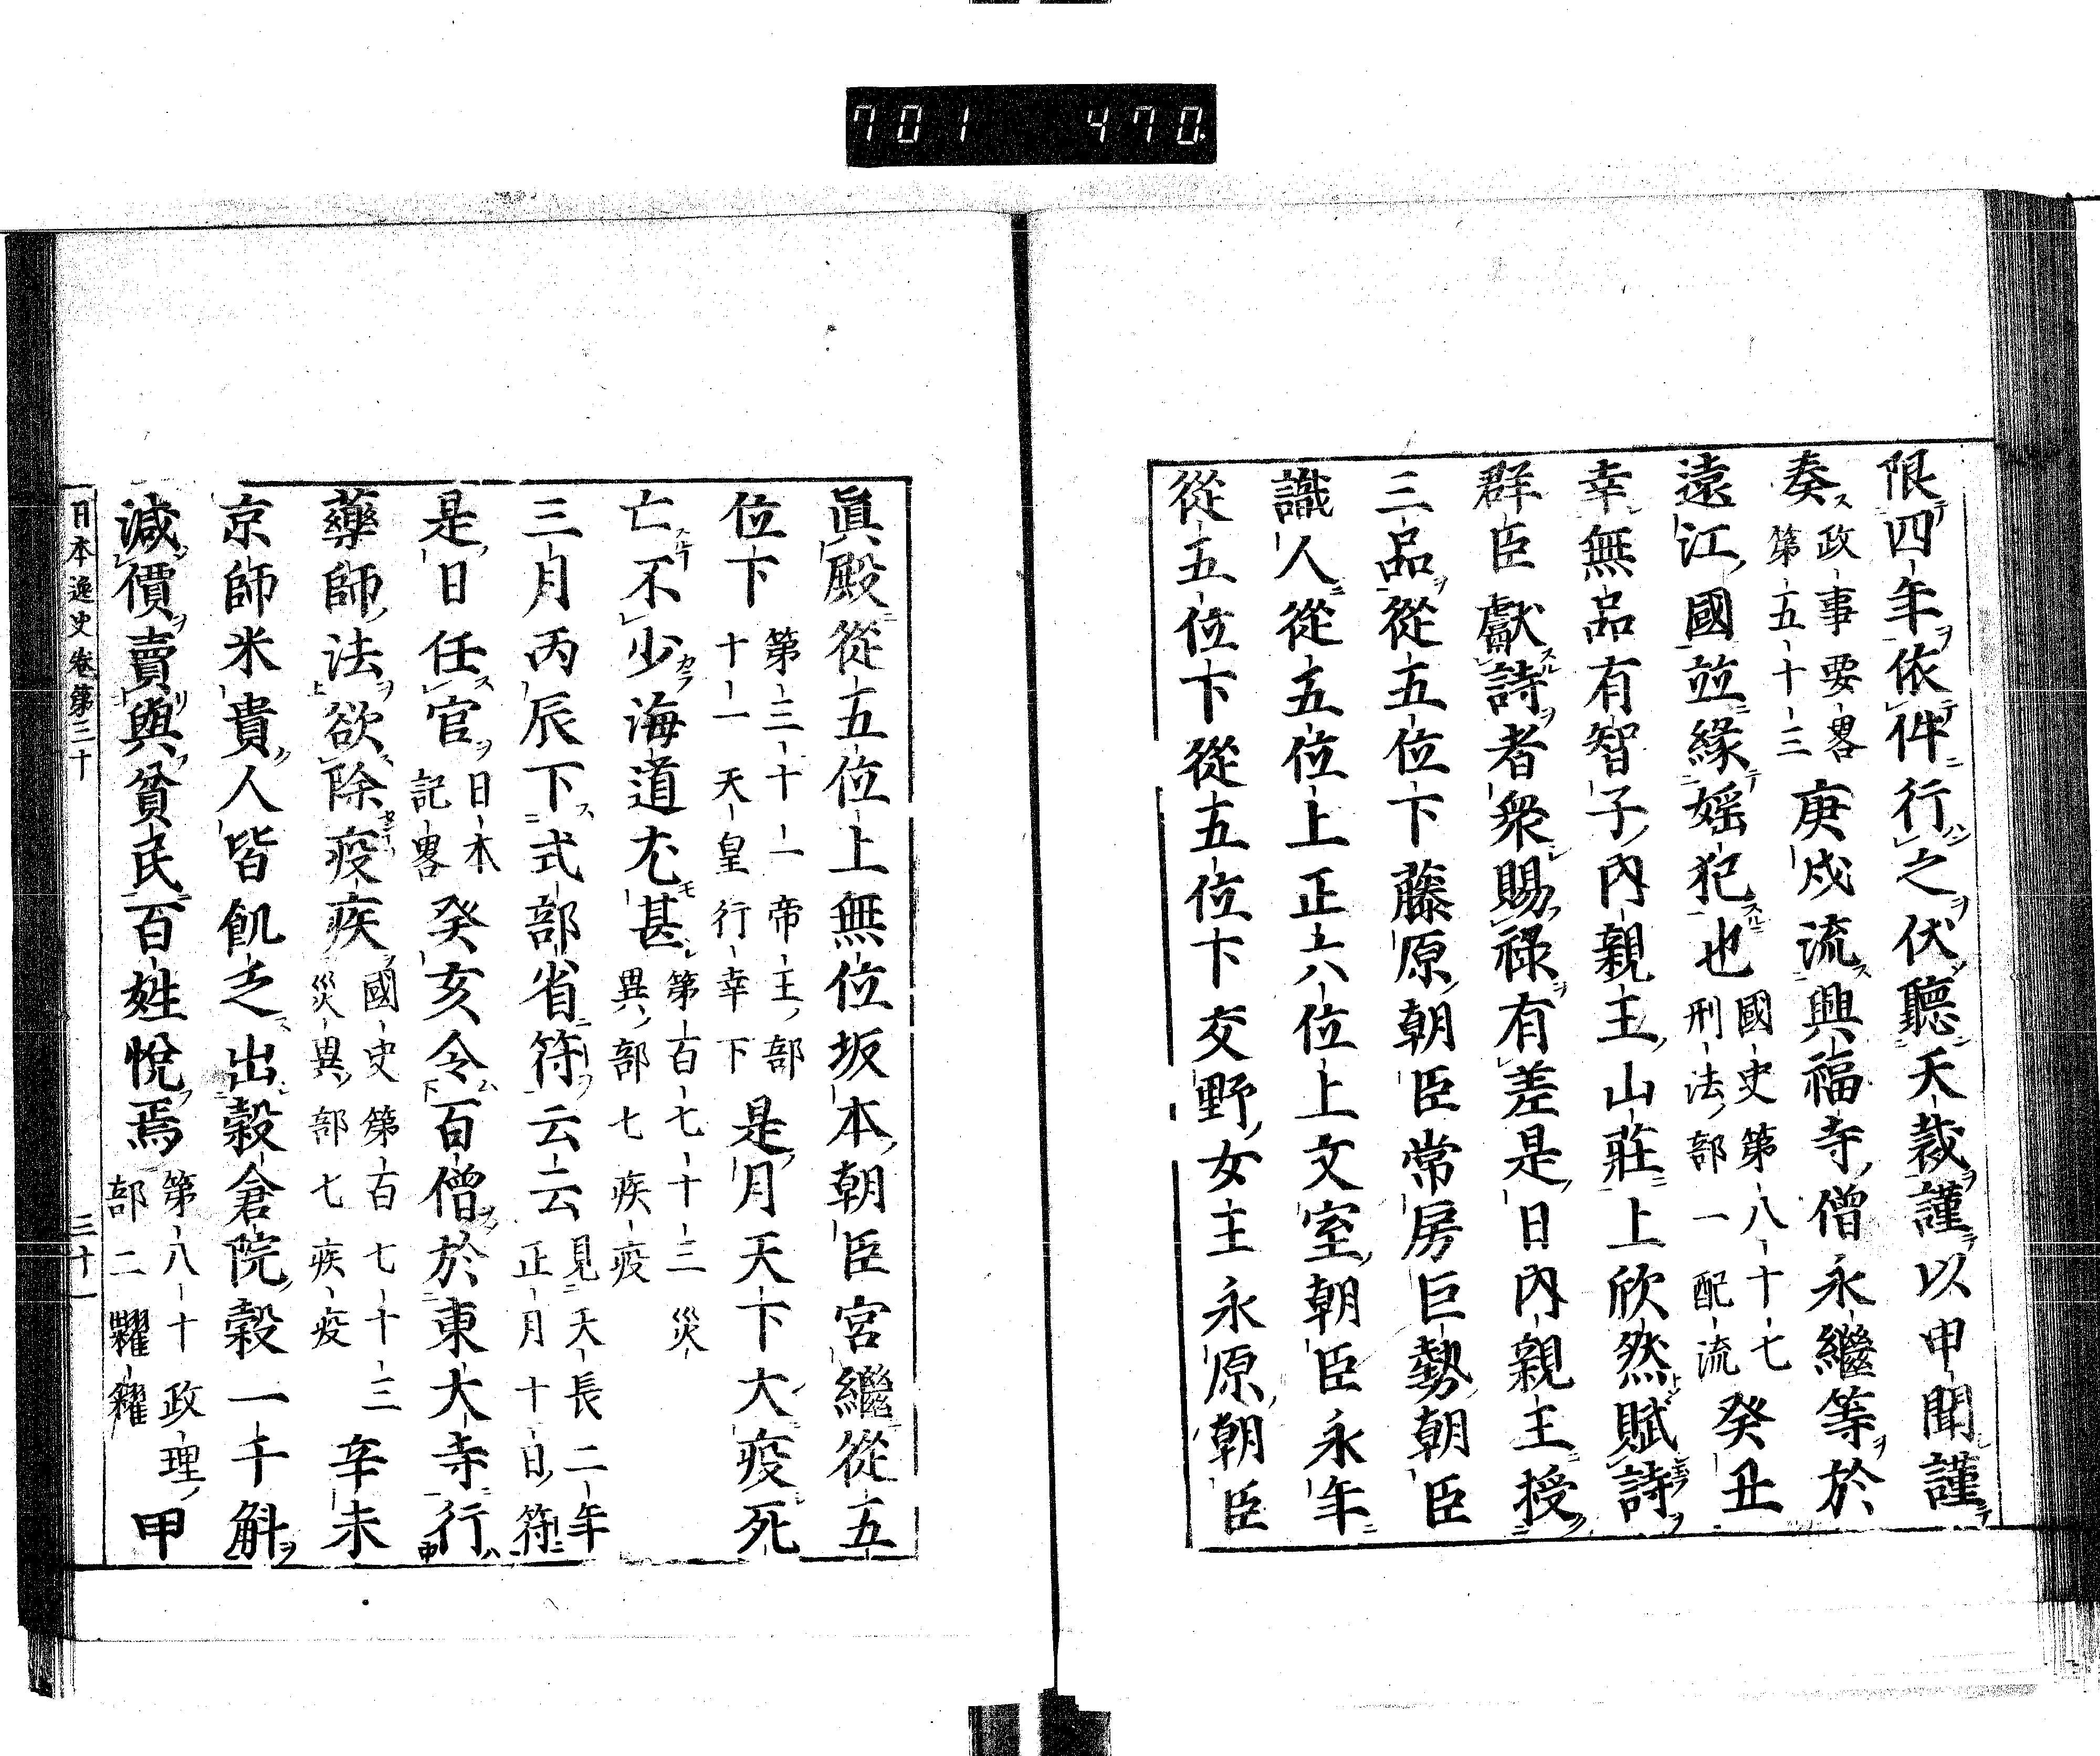 701 470
限四年依件行之伏聽天裁謹以申聞謹
奏政事要畧第五十三庚戌流興福寺僧永繼等於
遠江國竝緣婬犯也國史第八十七刑法部一配流癸丑
幸無品有智子内親王山莊上欣然賦詩
群臣獻詩者衆賜祿有差是日内親王授
三品從五位下藤原朝臣常房巨勢朝臣
識人從五位上正六位上文室朝臣永年
從五位下從五位下交野女主永原朝臣
眞殿從五位上無位坂本朝臣宮繼從五
位下第三十一帝王部十一天皇行幸下是月天下大疫死
亡不少海道尤甚第百七十三災異部七疾疫
三月丙辰下式部省符云云見天長二年正月十日符
是日任官日本記畧癸亥令百僧於東大寺行
藥師法欲除疫疾國史第百七十三災異部七疾疫辛未
京師米貴人皆飢乏出穀倉院穀一千斛
減價賣與貧民百姓悅焉第八十政理部二糶糴甲
日本逸史卷第三十 三十一